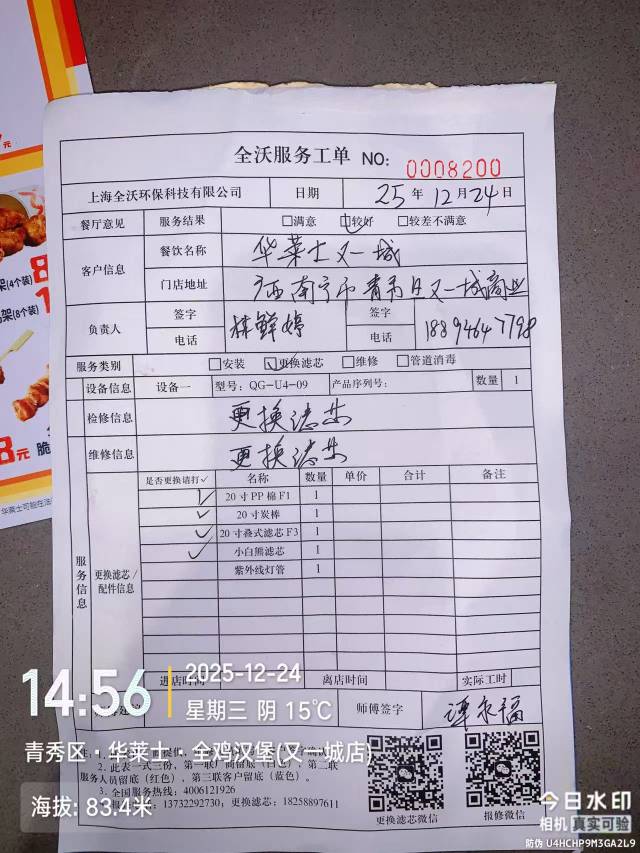 元
架(4个装) 8
架(8个装) 1
8元 脆
华莱士可能在法
全沃服务工单 NO: 0008200
上海全沃环保科技有限公司 日期 25年12月24日
餐厅意见 服务结果 □满意 ☑较好 □较差不满意
客户信息 餐饮名称 华莱士又一城
门店地址 广西南宁市青秀区又一城商业
负责人 签字 林鲜婷 签字
电话 电话 18894647798
服务类别 □安装 ☑更换滤芯 □维修 □管道消毒
设备信息 设备一 型号: QG-U4-09 产品序列号: 数量 1
检修信息 更换滤芯
维修信息 更换滤芯
服务信息 更换滤芯/配件信息
是否更换请打✓ 名称 数量 单价 合计 备注
✓ 20寸PP棉F1 1
✓ 20寸炭棒 1
✓ 20寸叠式滤芯F3 1
✓ 小白熊滤芯 1
紫外线灯管 1
进店时间 离店时间 实际工时
师傅签字 谭永福
2. 此表一式三份，第一联厂商留底（白色），第二联
服务人员留底（红色），第三联客户留底（蓝色）。
3. 全国服务热线: 4006121926
报修热线: 13732292730，更换滤芯: 18258897611
更换滤芯微信 报修微信
14:56 2025-12-24
星期三 阴 15℃
青秀区·华莱士·全鸡汉堡(又一城店)
海拔: 83.4米
今日水印
相机 真实可验
防伪 U4HCHP9M3GA2L9